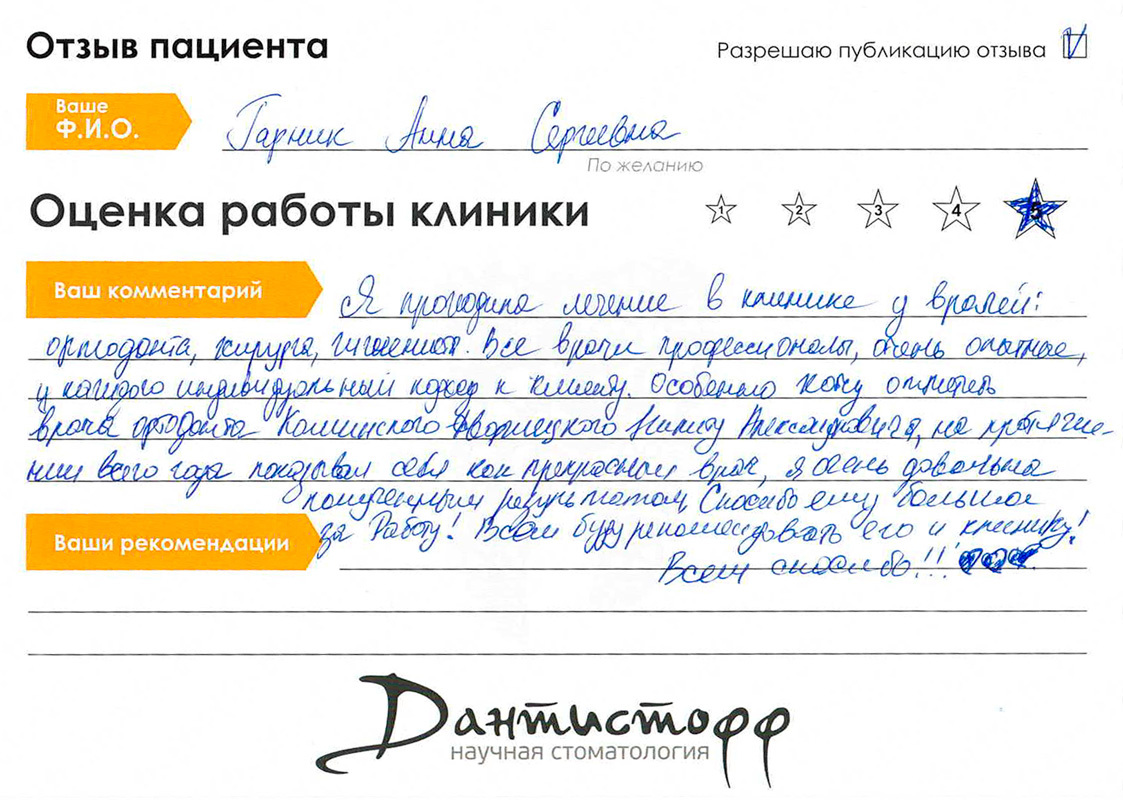 Отзыв пациента
Разрешаю публикацию отзыва V
Ваше
Ф.И.О.
Гарник Анна Сергеевна
По желанию
Оценка работы клиники 1 2 3 4 5
Ваш комментарий
Я проходила лечение в клинике у врачей:
ортодонта, хирурга, гигиениста. Все врачи профессионалы, очень опытные,
у каждого индивидуальный подход к клиенту. Особенно хочу отметить
врача ортодонта Никиту Александровича, на протяже-
нии всего года показывал себя как прекрасный врач, я очень довольна
полученным результатом, Спасибо ему большое
за Работу! Всем буду рекомендовать его и клинику!
Ваши рекомендации
Всем спасибо!!!
Дантистофф
научная стоматология